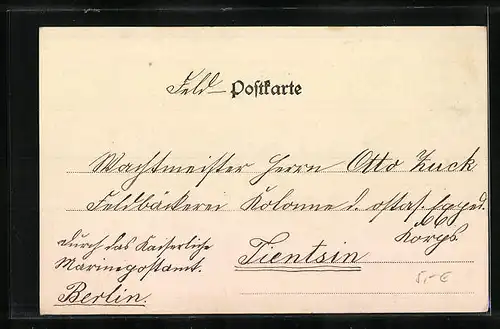 Feld- Postkarte
Wachtmeister Herrn Otto Zuck
Feldbäckerei Kolonne d. ostas. Exped.
Korps.
Tientsin
durch das Kaiserliche
Marinepostamt.
Berlin.
5,- €